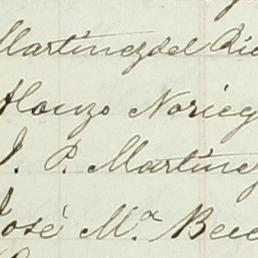 Martinez del Rio
Alonzo Norieg
J. P. Martinez
José Mª Bece